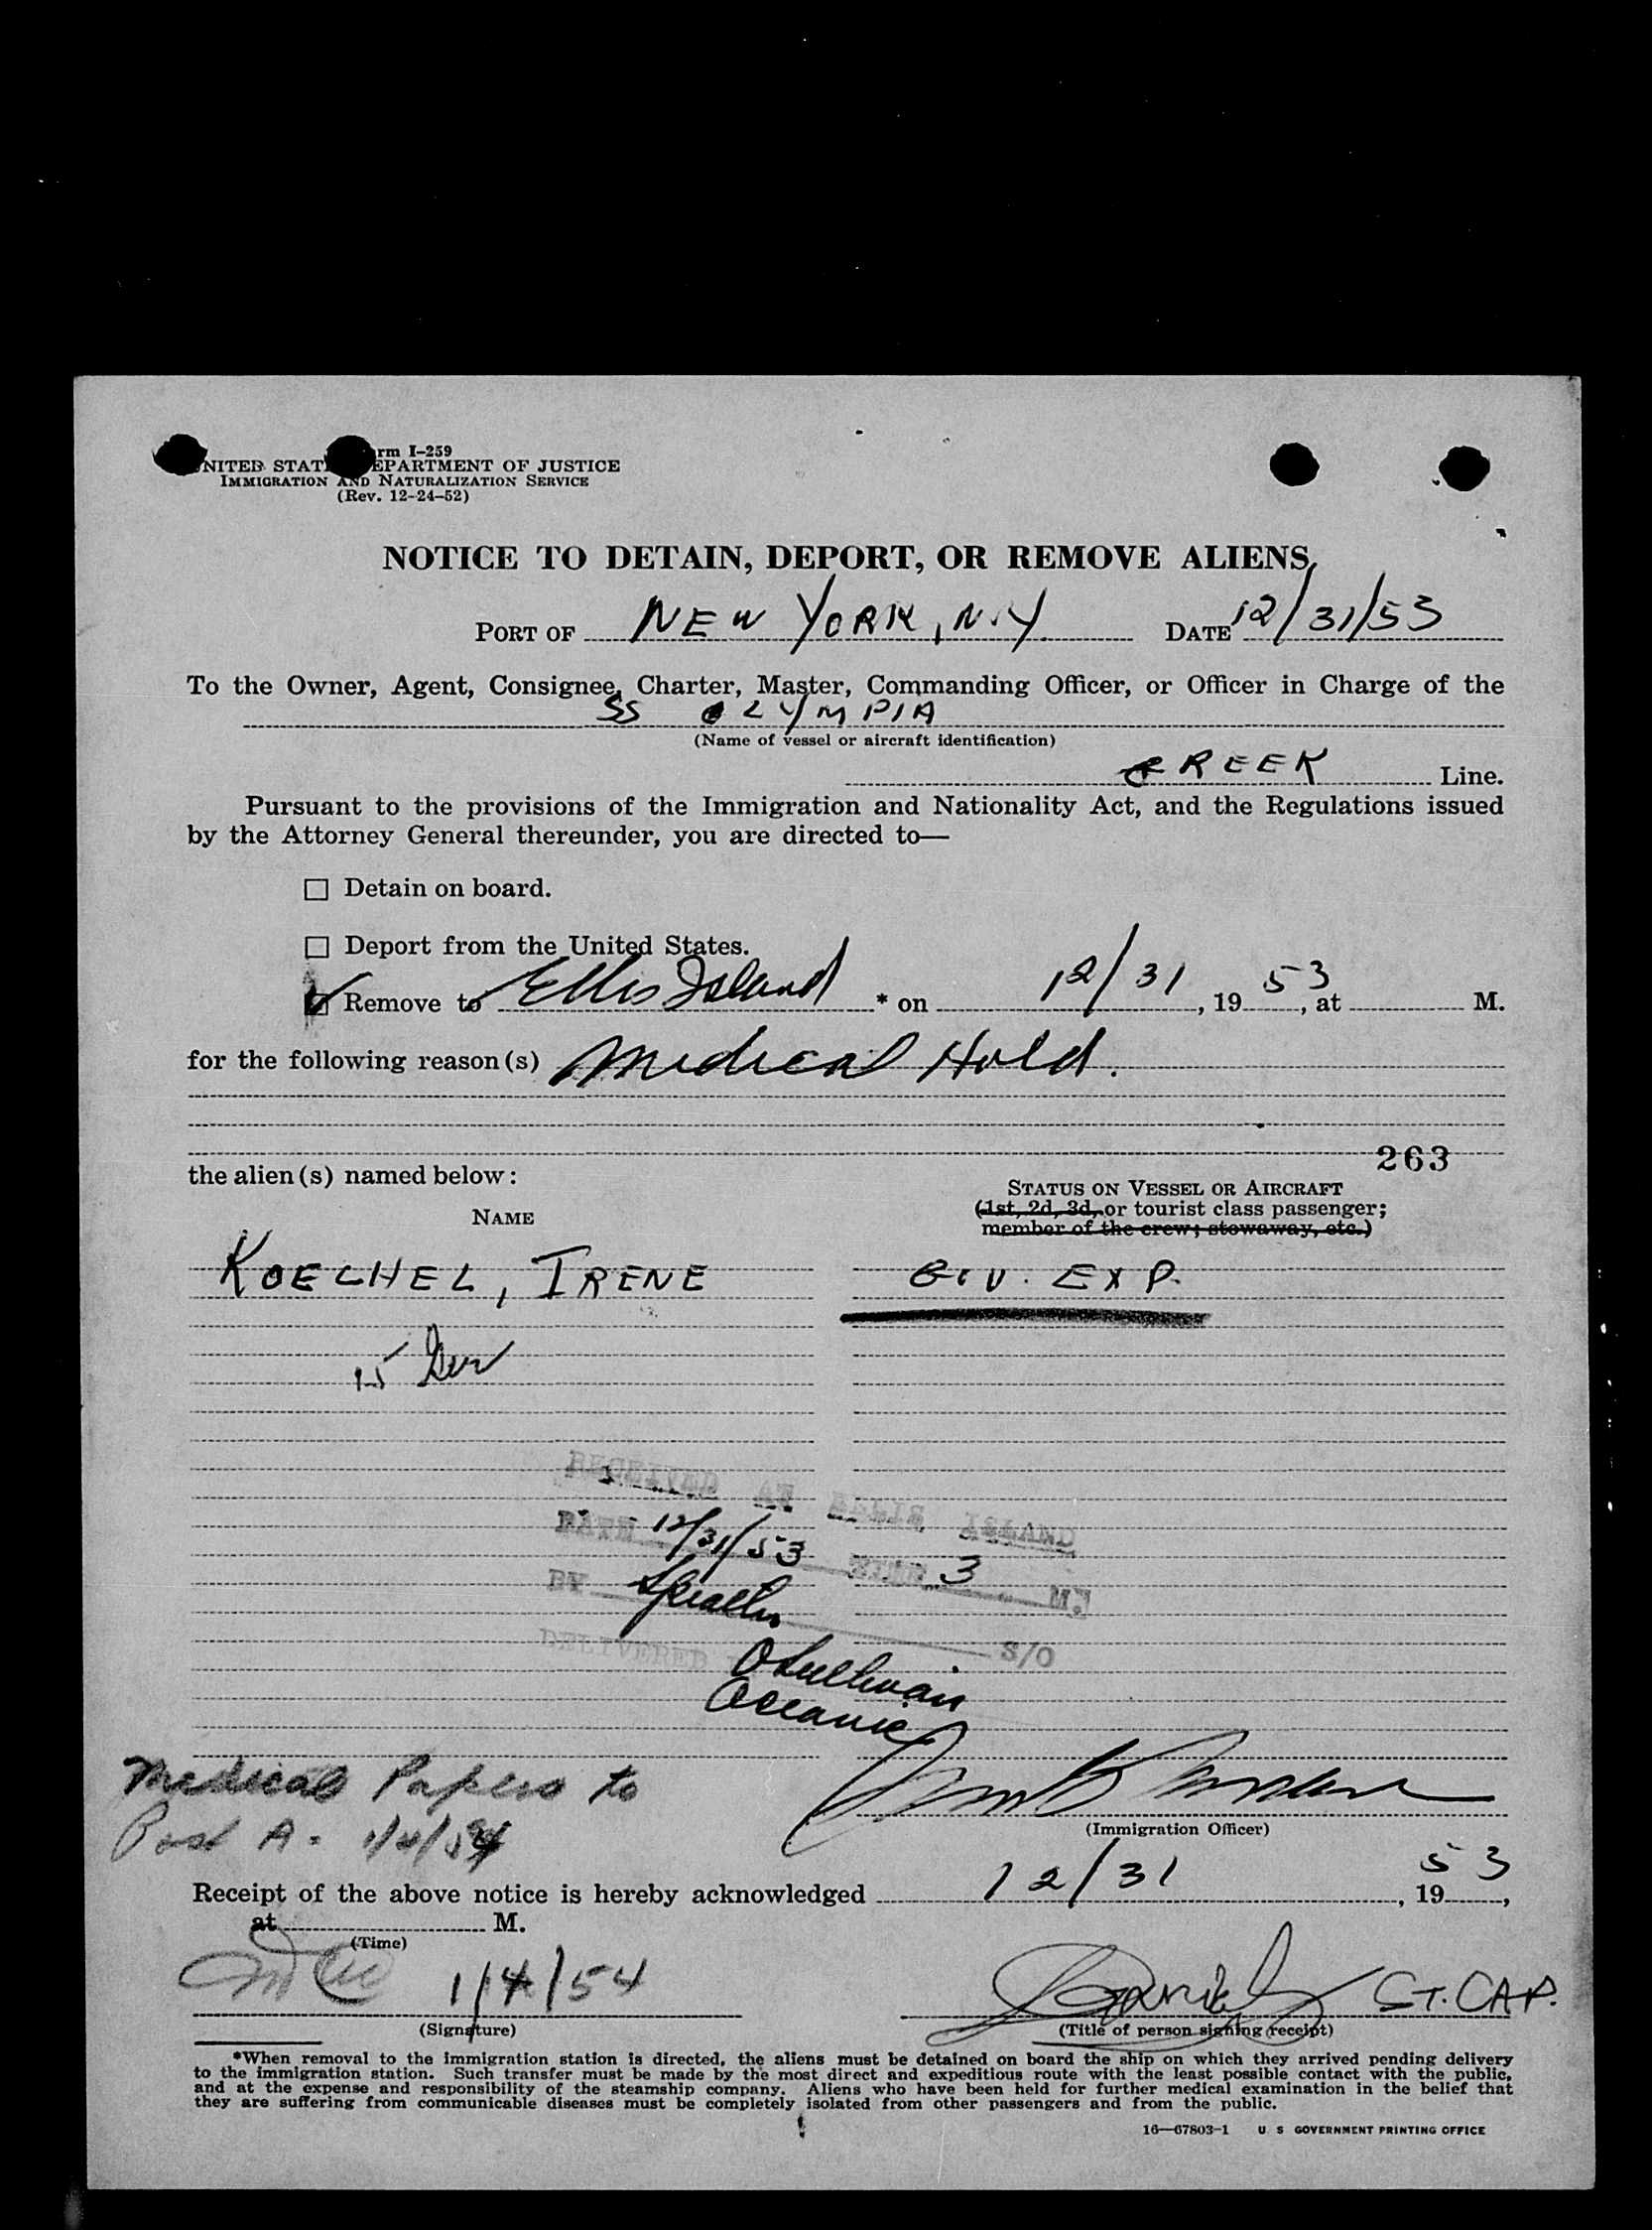 rm I-259
NITED STAT EPARTMENT OF JUSTICE
IMMIGRATION AND NATURALIZATION SERVICE
(Rev. 12-24-52)
NOTICE TO DETAIN, DEPORT, OR REMOVE ALIENS
PORT OF NEW YORK, N.Y. DATE 12/31/53
To the Owner, Agent, Consignee, Charter, Master, Commanding Officer, or Officer in Charge of the
SS OLYMPIA
(Name of vessel or aircraft identification)
GREEK Line.
Pursuant to the provisions of the Immigration and Nationality Act, and the Regulations issued
by the Attorney General thereunder, you are directed to—
Detain on board.
Deport from the United States.
Remove to Ellis Island * on 12/31, 1953, at M.
for the following reason(s) Medical Hold.
263
the alien(s) named below:
STATUS ON VESSEL OR AIRCRAFT
(1st, 2d, 3d, or tourist class passenger;
NAME
member of the crew; stowaway, etc.)
KOECHEL, IRENE
GOV. EXP.
15 Ger
RECEIVED AT ELLIS ISLAND
DATE 12/31/53 TIME 3 M.
BY
DELIVERED S/O
OSullivan
Oceanic
Medical Papers to
Post A. 1/4/54
(Immigration Officer)
Receipt of the above notice is hereby acknowledged 12/31, 1953,
at M.
(Time)
1/4/54
ST. CAP.
(Signature)
(Title of person signing receipt)
*When removal to the immigration station is directed, the aliens must be detained on board the ship on which they arrived pending delivery
to the immigration station. Such transfer must be made by the most direct and expeditious route with the least possible contact with the public,
and at the expense and responsibility of the steamship company. Aliens who have been held for further medical examination in the belief that
they are suffering from communicable diseases must be completely isolated from other passengers and from the public.
16—67803-1 U S GOVERNMENT PRINTING OFFICE